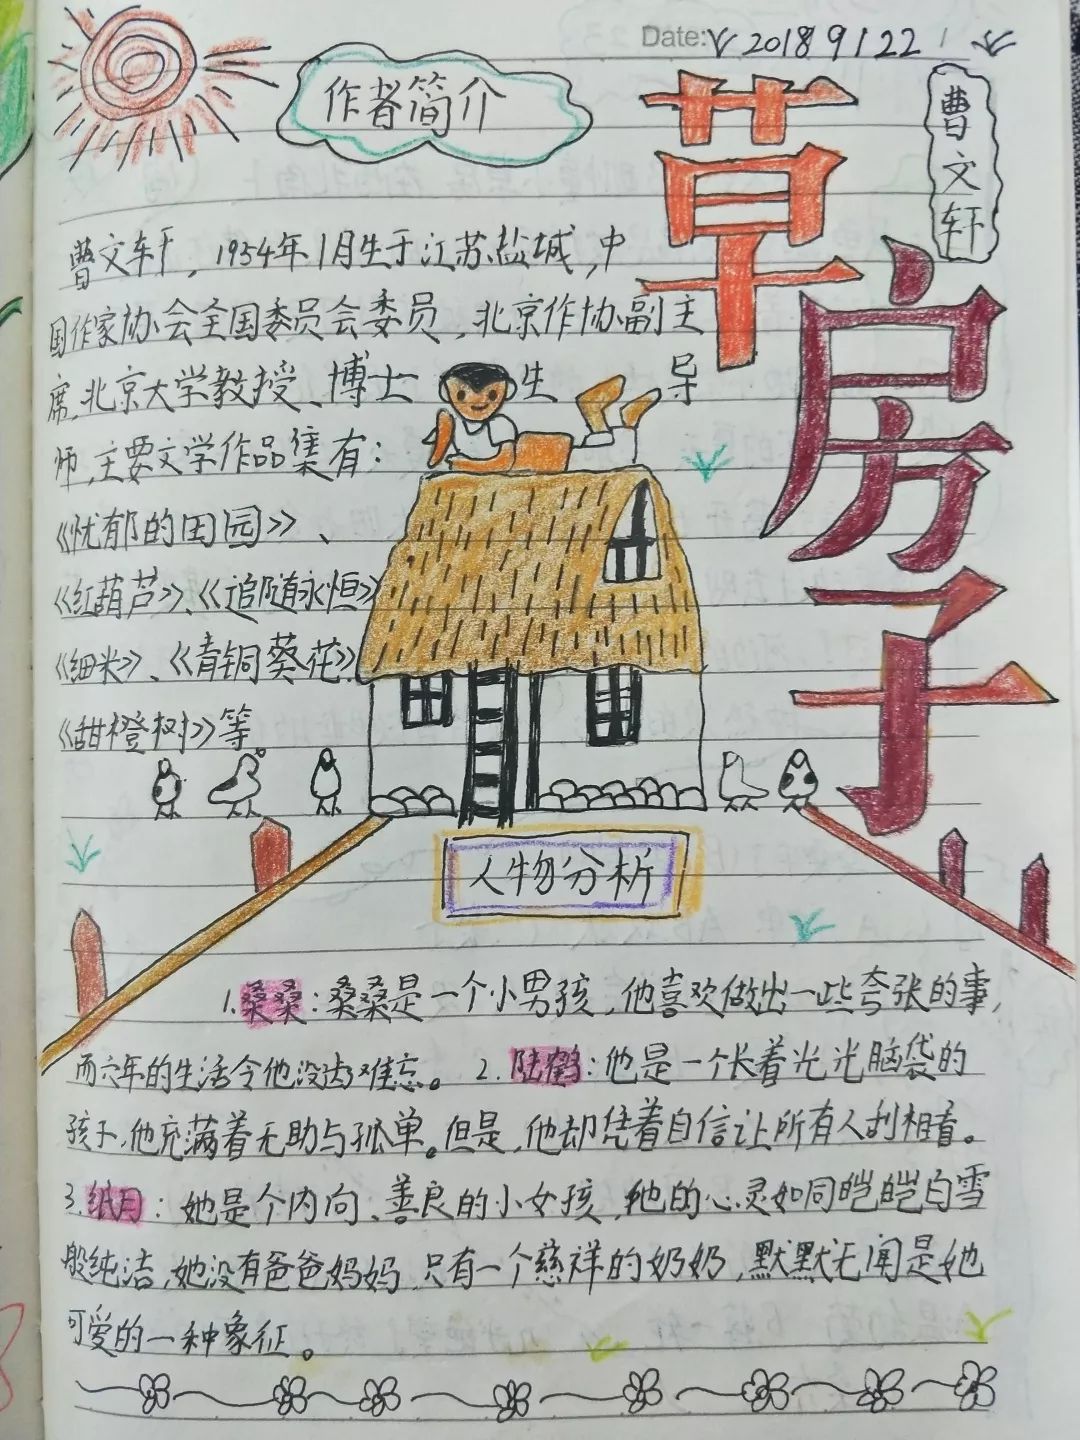 Date: 2018 9 1 22
作者简介
草房子
曹文轩
曹文轩，1954年1月生于江苏盐城，中
国作家协会全国委员会委员，北京作协副主
席，北京大学教授、博士生导
师，主要文学作品集有：
《忧郁的田园》、
《红葫芦》、《追随永恒》
《细米》、《青铜葵花》、
《甜橙树》等。
人物分析
1.桑桑：桑桑是一个小男孩，他喜欢做出一些夸张的事，
而六年的生活令他没齿难忘。2.陆鹤：他是一个长着光光脑袋的
孩子，他充满着无助与孤单。但是，他却凭着自信让所有人刮相看。
3.纸月：她是个内向、善良的小女孩，她的心灵如同皑皑白雪
般纯洁，她没有爸爸妈妈，只有一个慈祥的奶奶，默默无闻是她
可爱的一种象征。